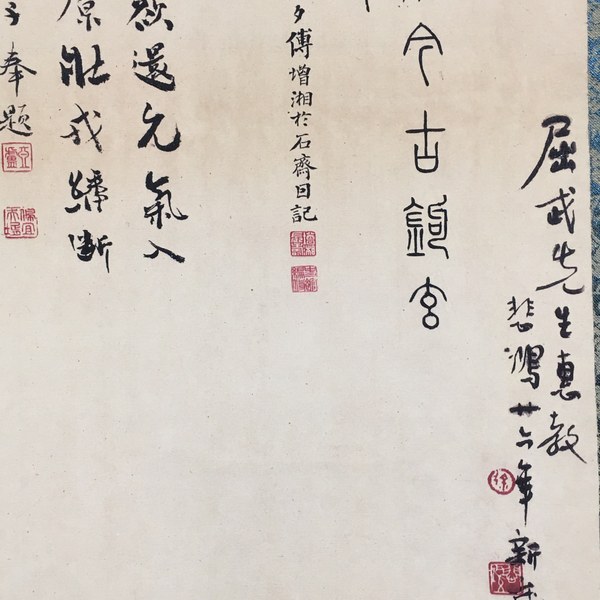 屈武先生惠教
悲鴻廿六年新
今古銁玄
夕傅增湘於石齋日記
欲還元氣入
原壯戎纔斷
子奉題